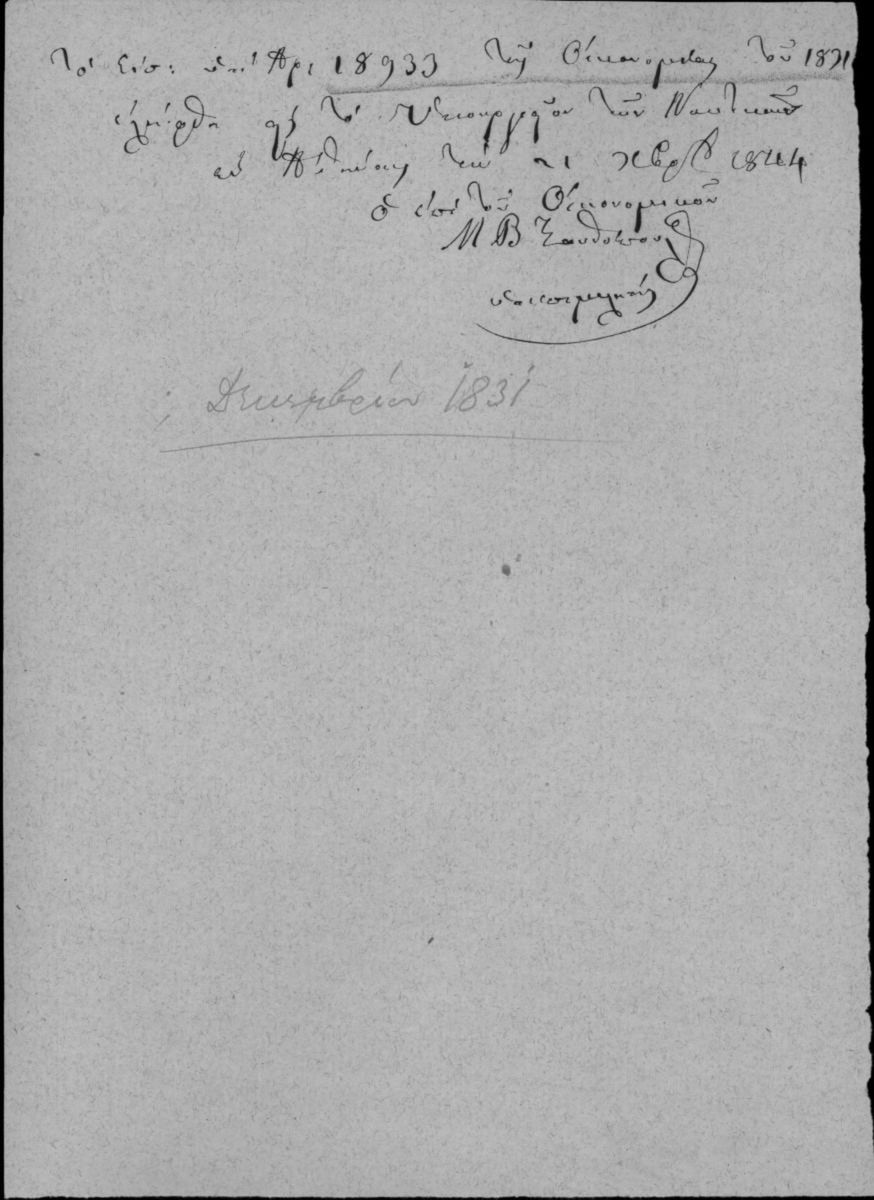 Τὸ ὑπ' Ἀρ: 18933 τῆς Οἰκονομίας τοῦ 1831
ἐλήφθη εἰς τὸ Ὑπουργεῖον τῶν Ναυτικῶν
ἐν Ἀθήναις τὴν 21 1844
ὁ ἐπὶ τῶν Οἰκονομικῶν
Μ Β
Δεκεμβρίου 1831